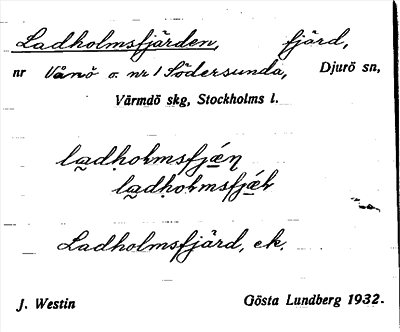 Ladholmsfjärden, fjärd,
nr Vånö o. nr 1 Södersunda, Djurö sn,
Värmdö skg, Stockholms l.
Ladholmsfjärd, ek.
J. Westin Gösta Lundberg 1932.